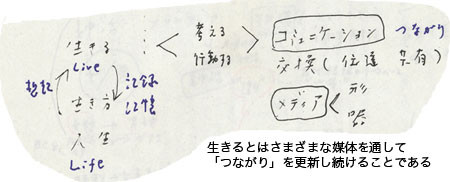 生きる
Live
考える
行動する
コミュニケーション つながり
交換（伝達 共有）
想起
記録
記憶
生き方
メディア
形
器
人生
Life
生きるとはさまざまな媒体を通して
「つながり」を更新し続けることである